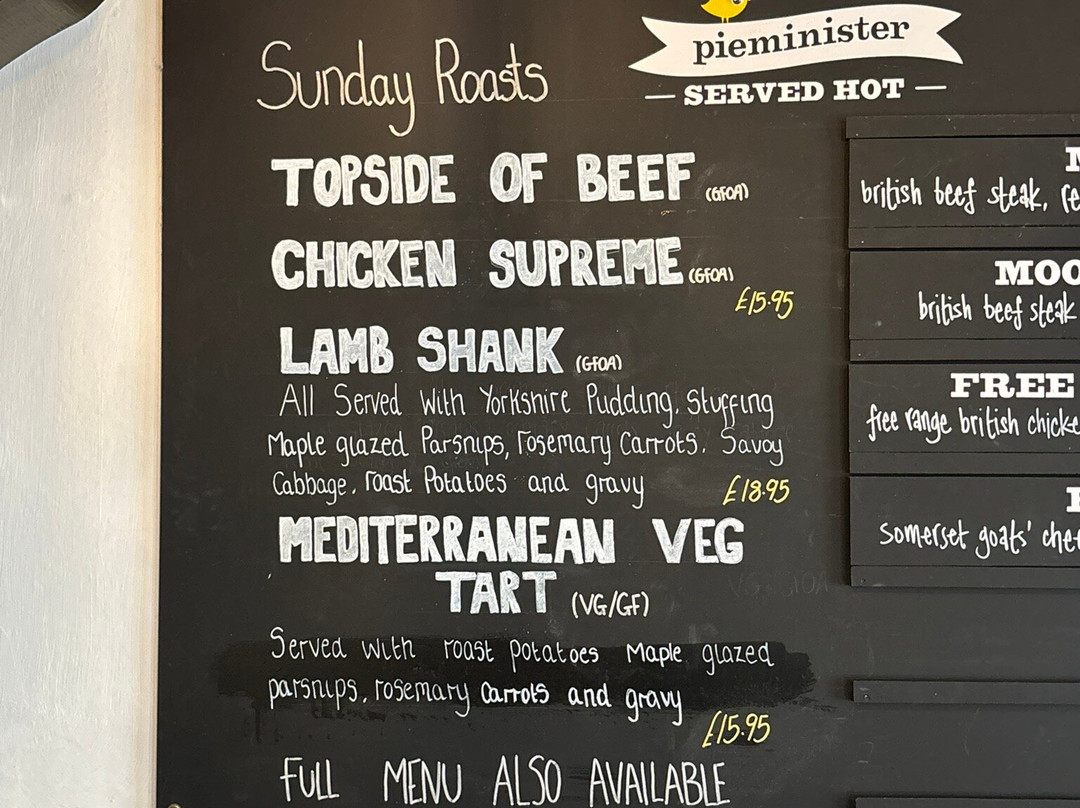 Sunday Roasts
TOPSIDE OF BEEF (GFOA)
CHICKEN SUPREME (GFOA)
£15.95
LAMB SHANK (GFOA)
All Served with Yorkshire Pudding, Stuffing
Maple glazed Parsnips, rosemary Carrots, Savoy
Cabbage, roast Potatoes and gravy £18.95
MEDITERRANEAN VEG
TART (VG/GF)
Served with roast potatoes Maple glazed
parsnips, rosemary Carrots and gravy
£15.95
FULL MENU ALSO AVAILABLE
pieminister
SERVED HOT
british beef steak,
MOO
british beef steak
FREE
free range british chicke
somerset goats' che